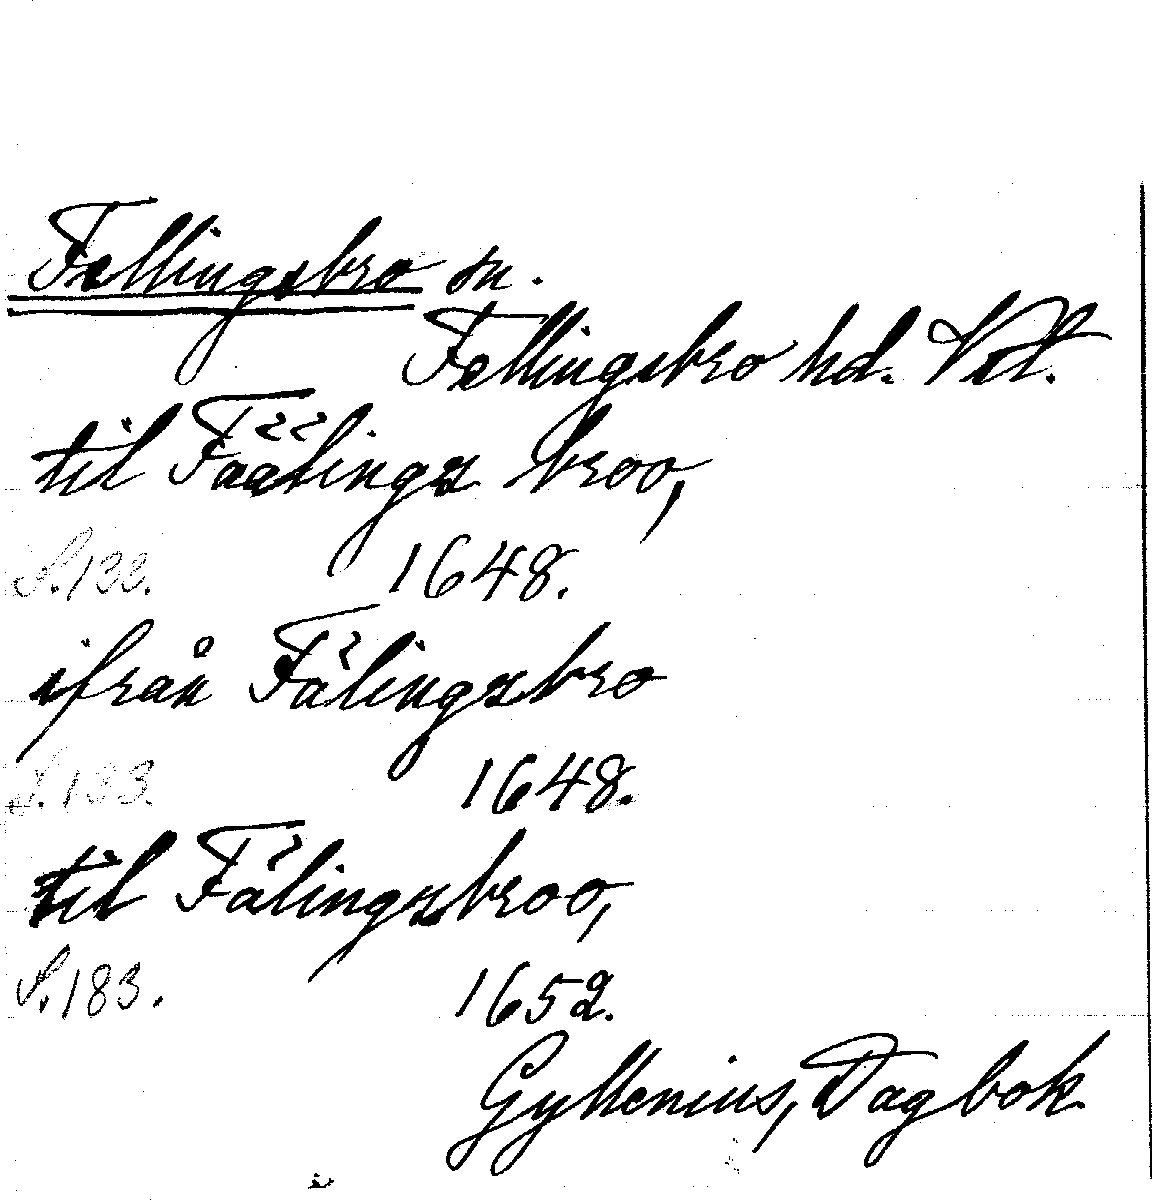 Fellingsbro sn.
Fellingsbro hd. Vstl.
til Fäälings broo,
S. 132. 1648.
ifrån Fälingsbro
S. 133. 1648.
til Fälingsbroo,
S. 183. 1652.
Gyllenius, Dagbok